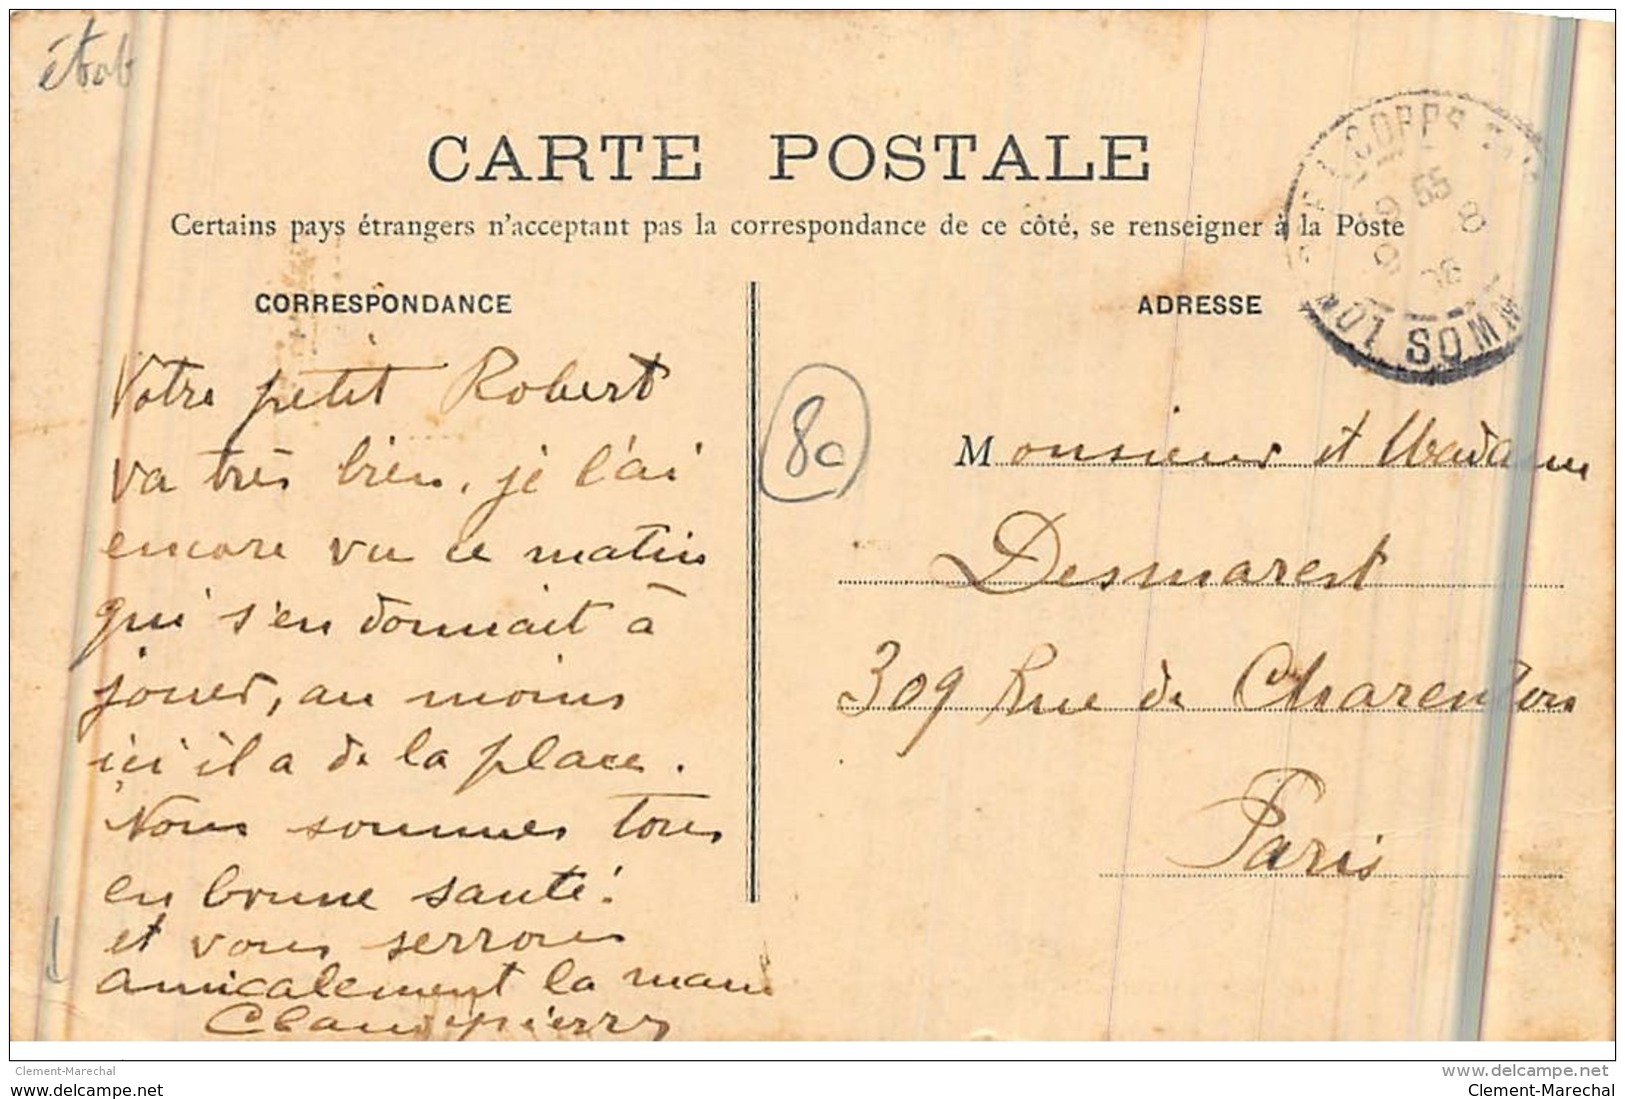 étab
CARTE POSTALE
Certains pays étrangers n'acceptant pas la correspondance de ce côté, se renseigner à la Poste
CORRESPONDANCE
Votre petit Robert
va très bien, je l'ai
encore vu ce matin
qui s'en donnait à
jouer, au moins
ici il a de la place.
Nous sommes tous
en bonne santé!
et vous serrons
amicalement la main
80
ADRESSE
Monsieur et Madame
Desmarest
309 Rue de Charenton
Paris
SOMME
Clement-Marechal
www.delcampe.net
www.delcampe.net
Clement-Marechal